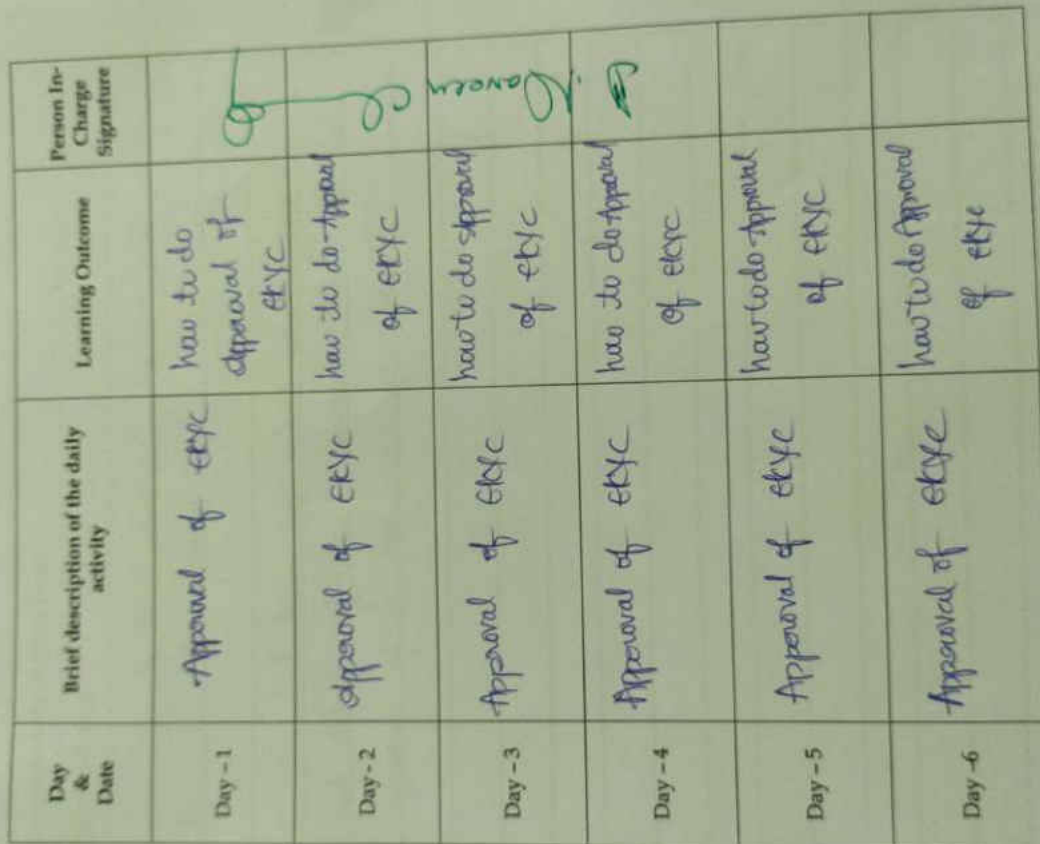 Day
&
Date
Brief description of the daily
activity
Learning Outcome
Person In-
Charge
Signature
Day - 1
Approval of EKYC
how to do
approval of
EKYC
Day - 2
approval of EKYC
how to do Approval
of EKYC
Day - 3
Approval of EKYC
how to do approval
of EKYC
Day - 4
Approval of EKYC
how to do Approval
of EKYC
Day - 5
Approval of EKYC
how to do Approval
of EKYC
Day -6
Approval of EKYC
how to do Approval
of EKYC